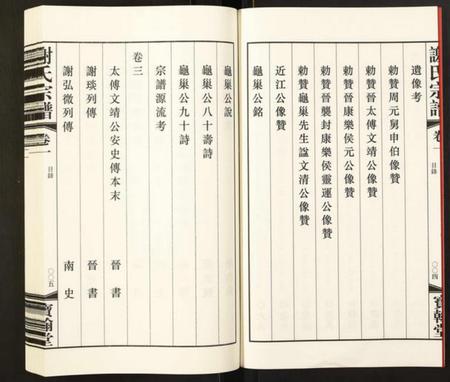 謝氏宗譜
卷一
目錄
〇〇四
寶翰堂
遺像考
勅贊周元舅申伯像贊
勅贊晉太傅文靖公像贊
勅贊晉康樂侯元公像贊
勅贊晉襲封康樂侯靈運公像贊
勅贊龜巢先生謚文清公像贊
近江公像贊
龜巢公銘
龜巢公說
龜巢公八十壽詩
龜巢公九十詩
宗譜源流考
卷三
太傅文靖公安史傳本末 晉書
謝琰列傳 晉書
謝弘微列傳 南史
謝氏宗譜
卷一
目錄
〇〇五
寶翰堂